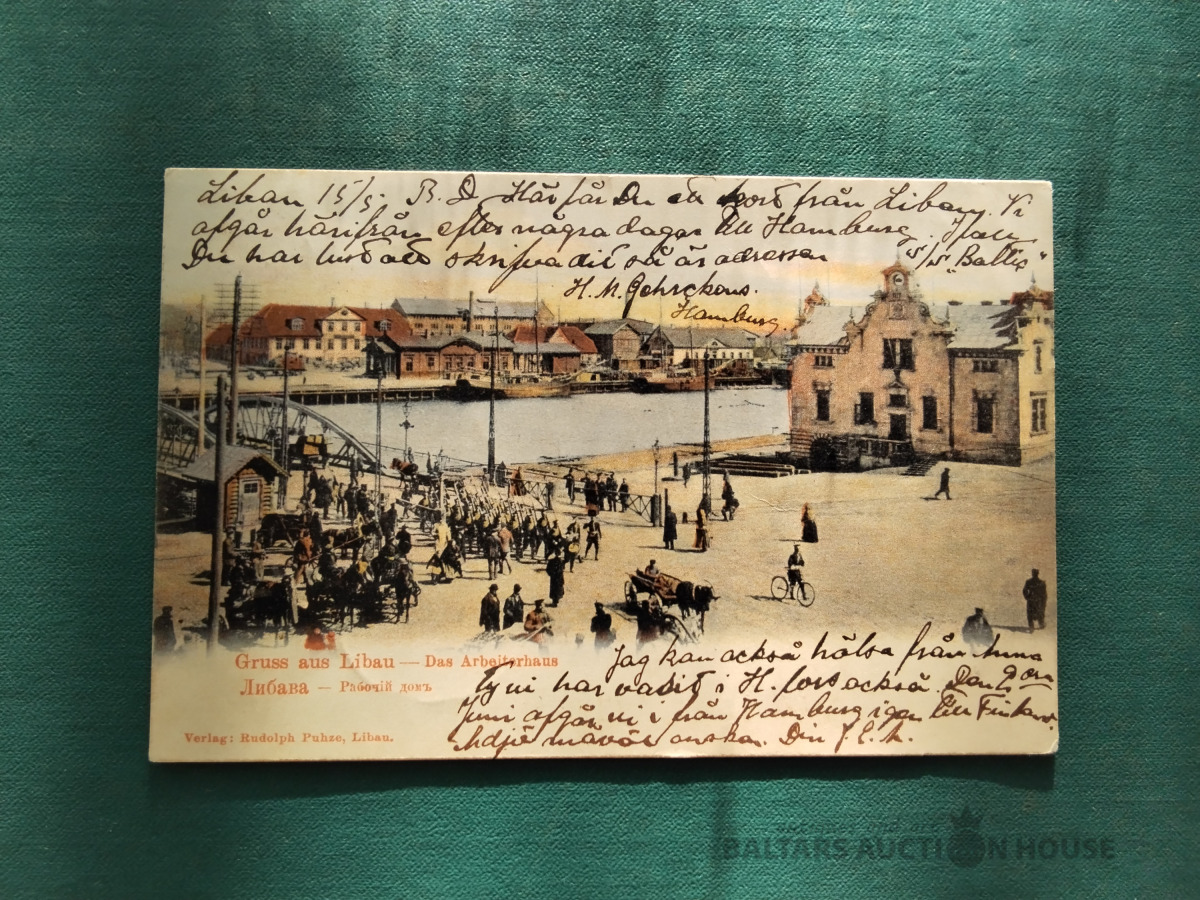 Libau 15/5. B. D. Här får Du ett kort från Libau. Vi
afgår härifrån efter några dagar till Hamburg. Ifall
Du har lust att skrifva dit så är adressen S/S "Baltic"
H. M. Gehrckens.
Hamburg.
Gruss aus Libau — Das Arbeiterhaus
Либава — Рабочій домъ
Verlag: Rudolph Puhze, Libau.
Jag kan också hälsa från Anna
Ty vi har varit i H.fors också. Den
Juni afgår vi från Hamburg igen till Finland.
Adjö Din
BALTARS AUCTION HOUSE